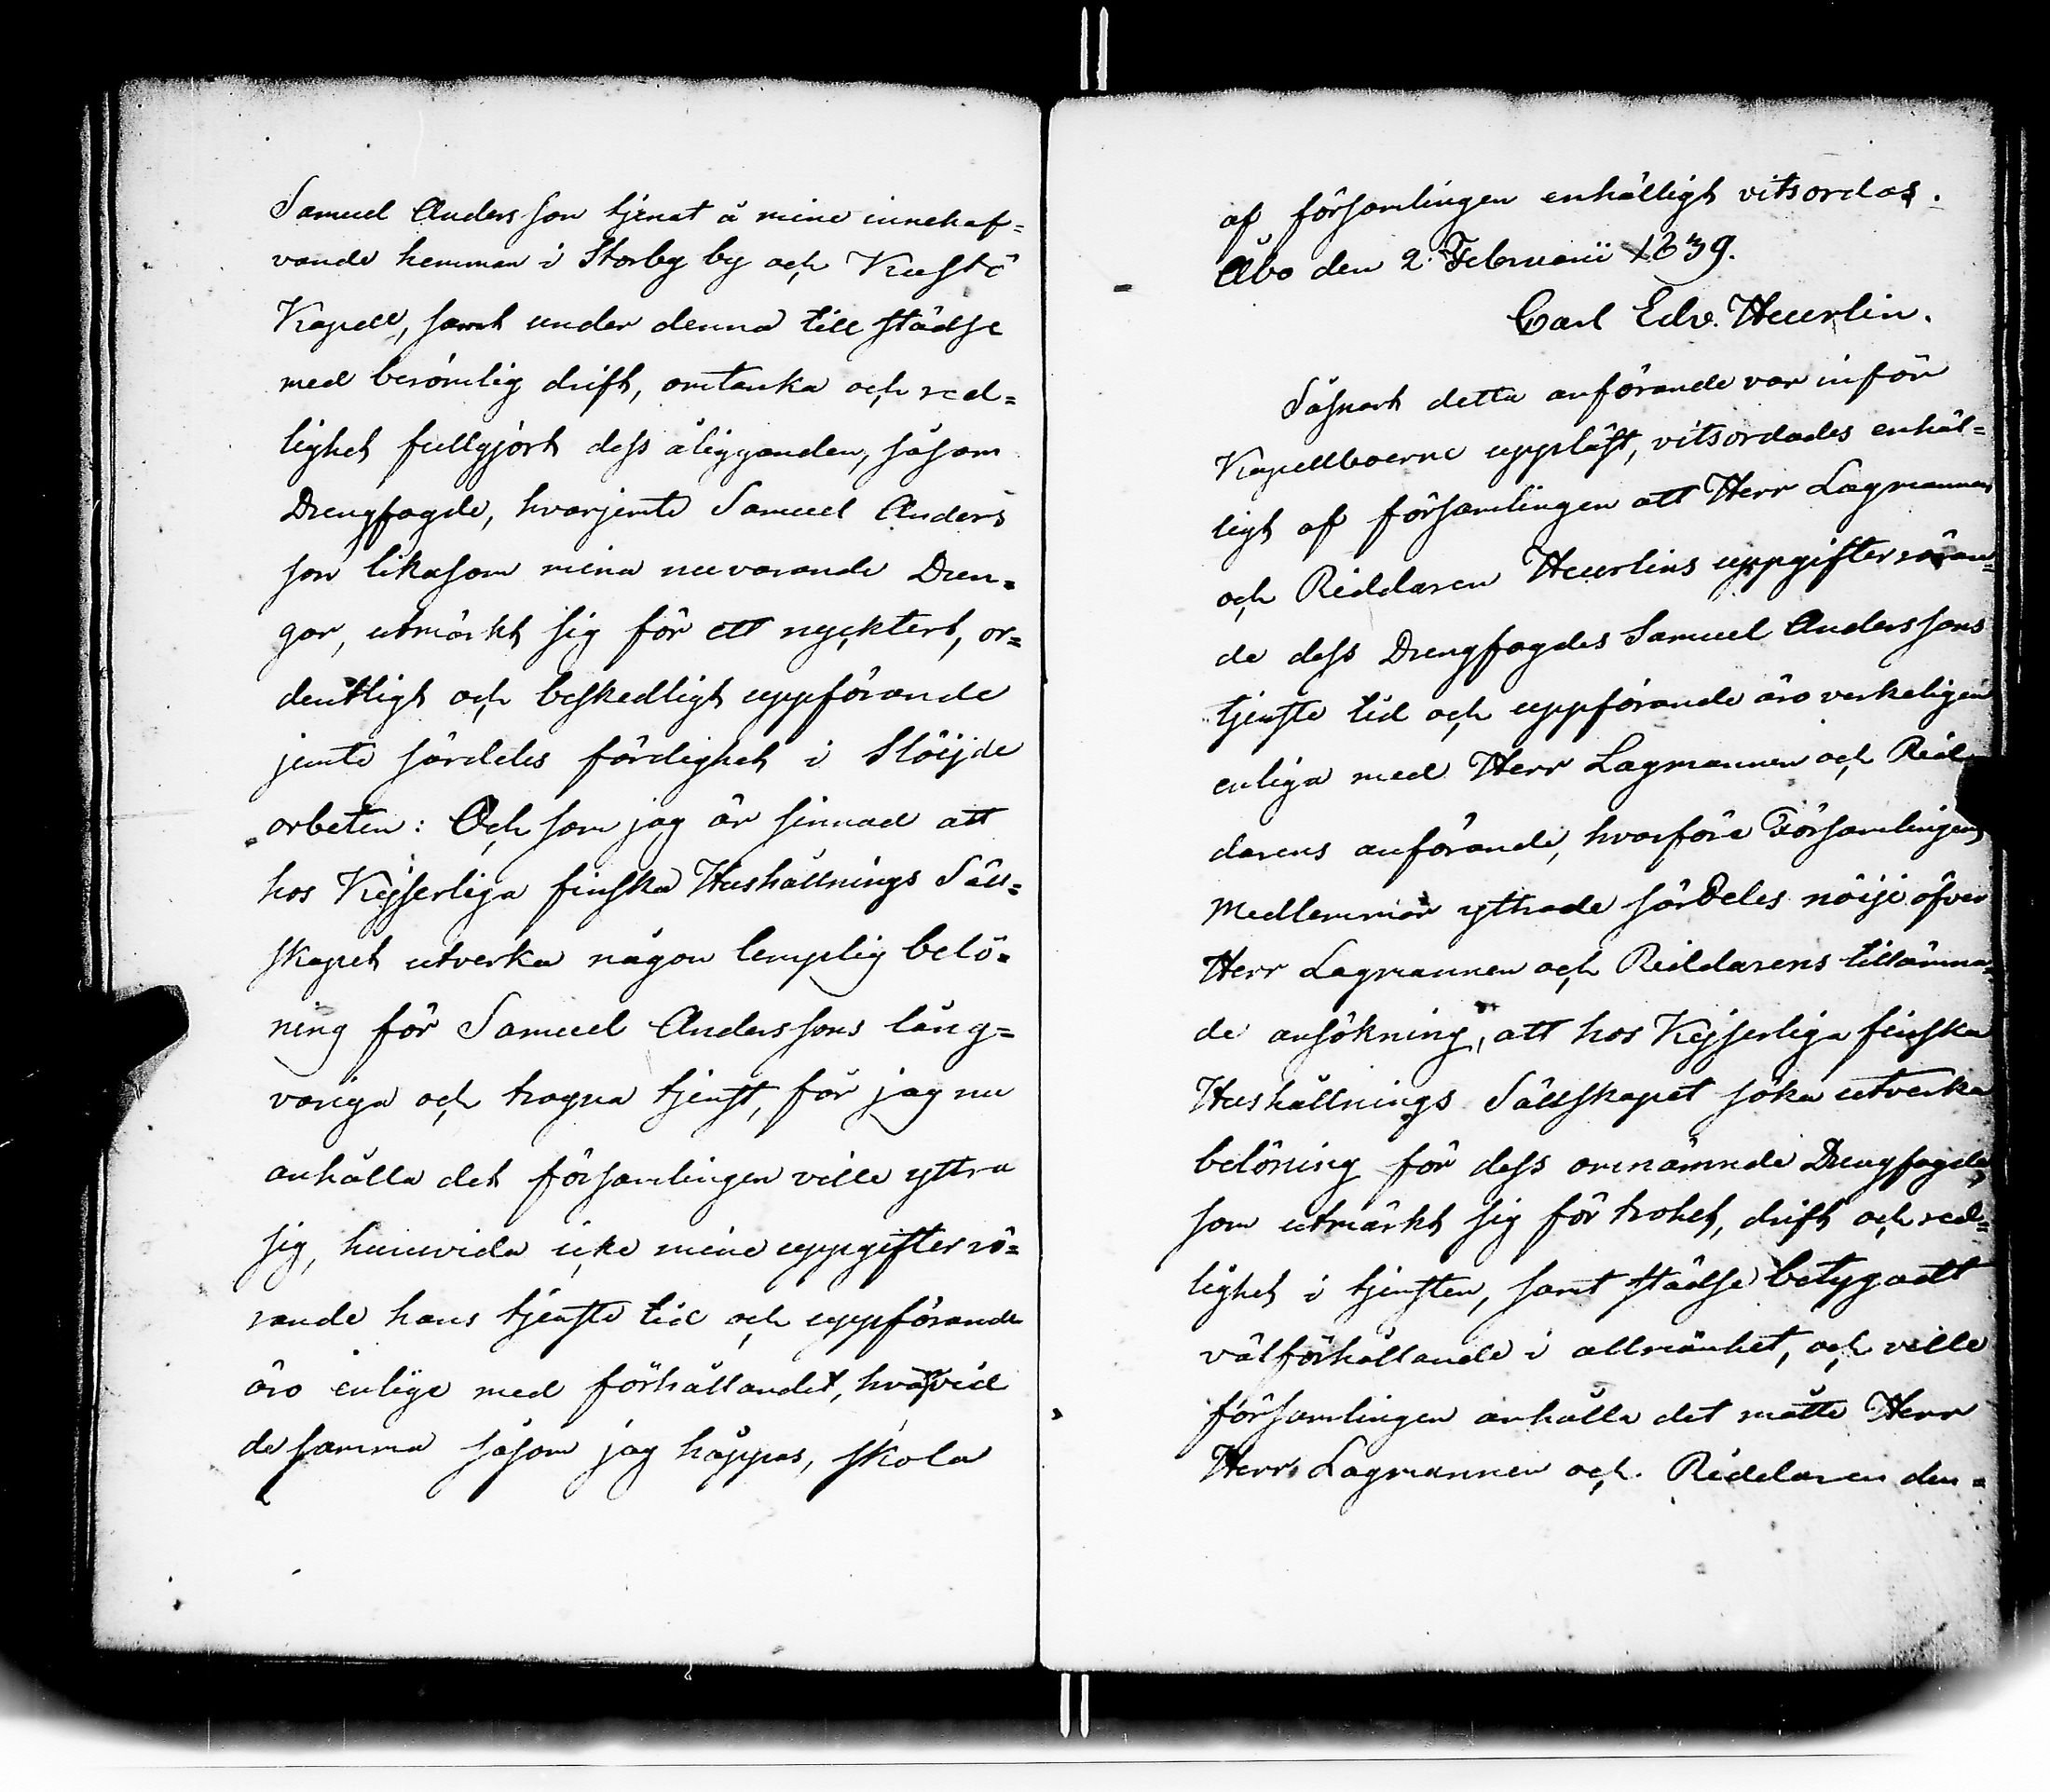 Samuel Andersson tjenat å mine innehaf=
vande hemman i Storby by och Kustö
Kapell, samt under denna tid städse
med berömlig drift, omtanka och red=
lighet fullgjort dess åligganden, såsom
Drengfogde, hvarjemte Samuel Anders
son likasom mina nuvarande Dren=
gar, utmärkt sig för ett nycktert, or=
dentligt och beskedligt uppförande
jemte särdeles färdighet i Slöijde
arbeten: Och som jag är sinnad att
hos Kejserliga finska Hushållnings Säll=
skapet utverka någon lempelig belö=
ning för Samuel Anderssons lång=
variga och trogna tjenst, får jag nu
anhålla det församlingen ville yttra
sig, huruvida icke mine uppgifter rö=
rande hans tjenste tid och uppförande
äro enlige med förhållandet, hvarvid
desamma såsom jag håppas, skola
af församlingen enhälligt vitsordas.
Åbo den 2 Februarii 1839.
Carl Edv. Heurlin.
Såsnart detta anförande var inför
Kapellboerne uppläst, vitsordades enhäl=
ligt af församlingen att Herr Lagmannen
och Riddaren Heurlins uppgifter röran=
de dess Drengfogdes Samuel Anderssons
tjenste tid och uppförande äro verkeligen
enliga med Herr Lagmannen och Rid
darens anförande, hvarföre Församlingens
Medlemmar yttrade särdeles nöije öfver
Herr Lagmannen och Riddarens tillämna=
de ansökning, att hos Kejserliga finska
Hushållnings Sällskapet söka utverka
belöning för dess omnämnde Drengfogde,
som utmärkt sig för trohet, drift och red=
lighet i tjensten, samt städse betygadt
välförhållande i allmänhet, och ville
församlingen anhålla det måtte Herr
Herr Lagmannen och Riddaren den=